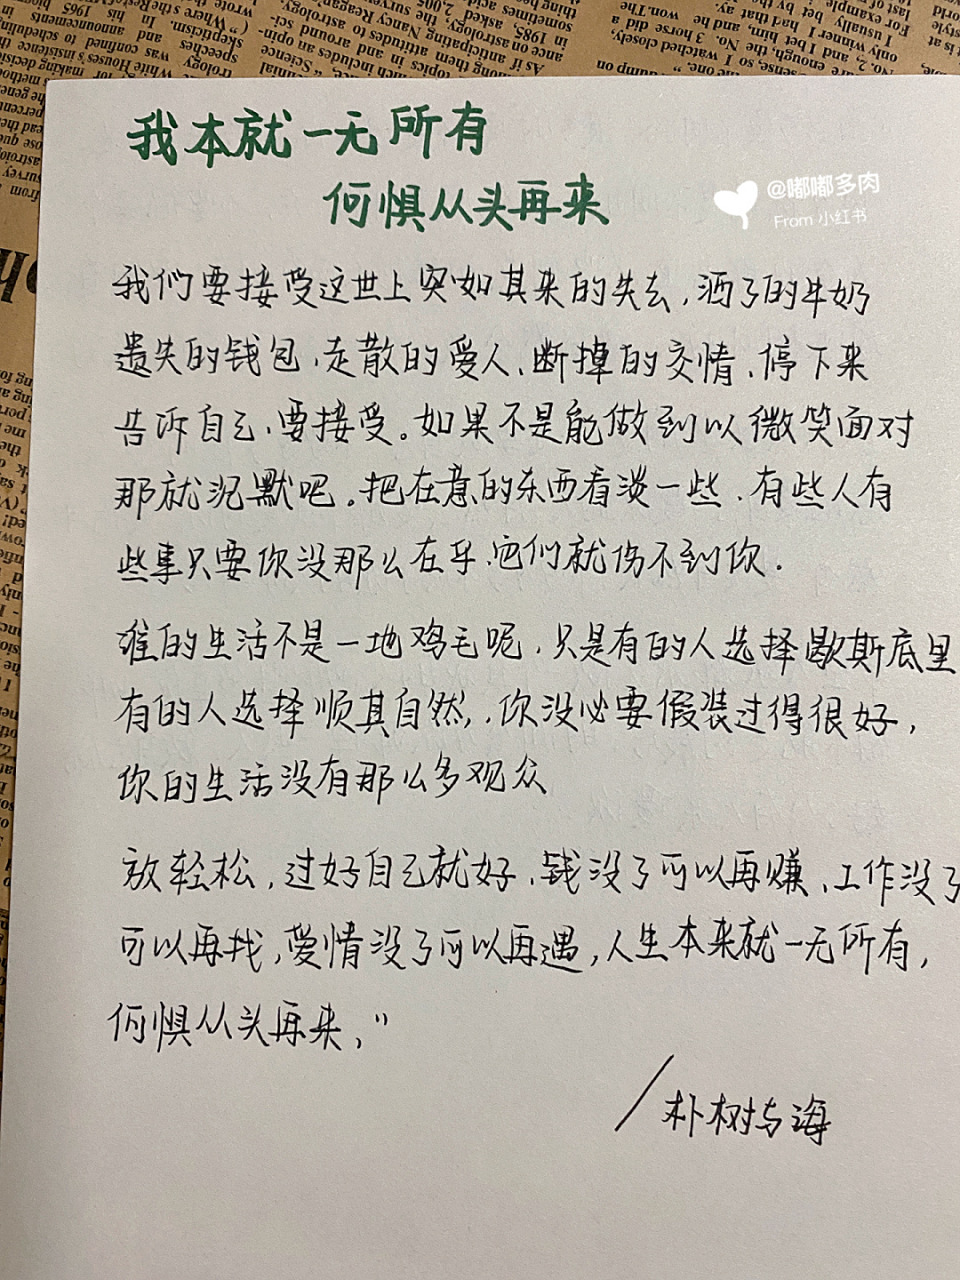 我本就一无所有
何惧从头再来
@嘟嘟多肉
From 小红书
我们要接受这世上突如其来的失去,洒了的牛奶
遗失的钱包,走散的爱人、断掉的交情、停下来
告诉自己,要接受。如果不是能做到以微笑面对
那就沉默吧。把在意的东西看淡一些,有些人有
些事只要你没那么在乎,它们就伤不到你.
谁的生活不是一地鸡毛呢,只是有的人选择歇斯底里
有的人选择顺其自然,你没必要假装过得很好,
你的生活没有那么多观众
放轻松,过好自己就好,钱没了可以再赚、工作没了
可以再找,爱情没了可以再遇,人生本来就一无所有,
何惧从头再来,"
/朴树与海